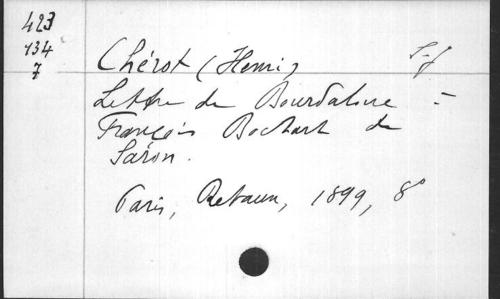 423
134
7
Chérot (Henri) S-f
Lettre de Bourdaloue =
François Bochart de
Saron.
Paris, Retaux, 1899, 8°